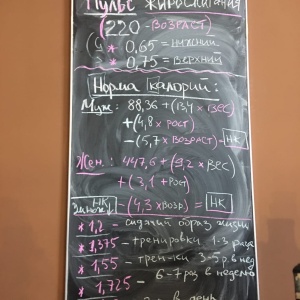 Пульс жиросжигания
(220 - возраст)
* 0,65 = нижний
* 0,75 = верхний
Норма калорий:
Муж: 88,36 + (13,4 × вес)
+ (4,8 × рост)
- (5,7 × возраст) = НК
Жен: 447,6 + (9,2 × вес)
+ (3,1 × рост)
- (4,3 × возр.) = НК
НК
* 1,2 - сидячий образ жизни
* 1,375 - тренировки 1-3 раза
* 1,55 - трен-ки 3-5 р. в нед
* 1,725 - 6-7 раз в неделю
в день